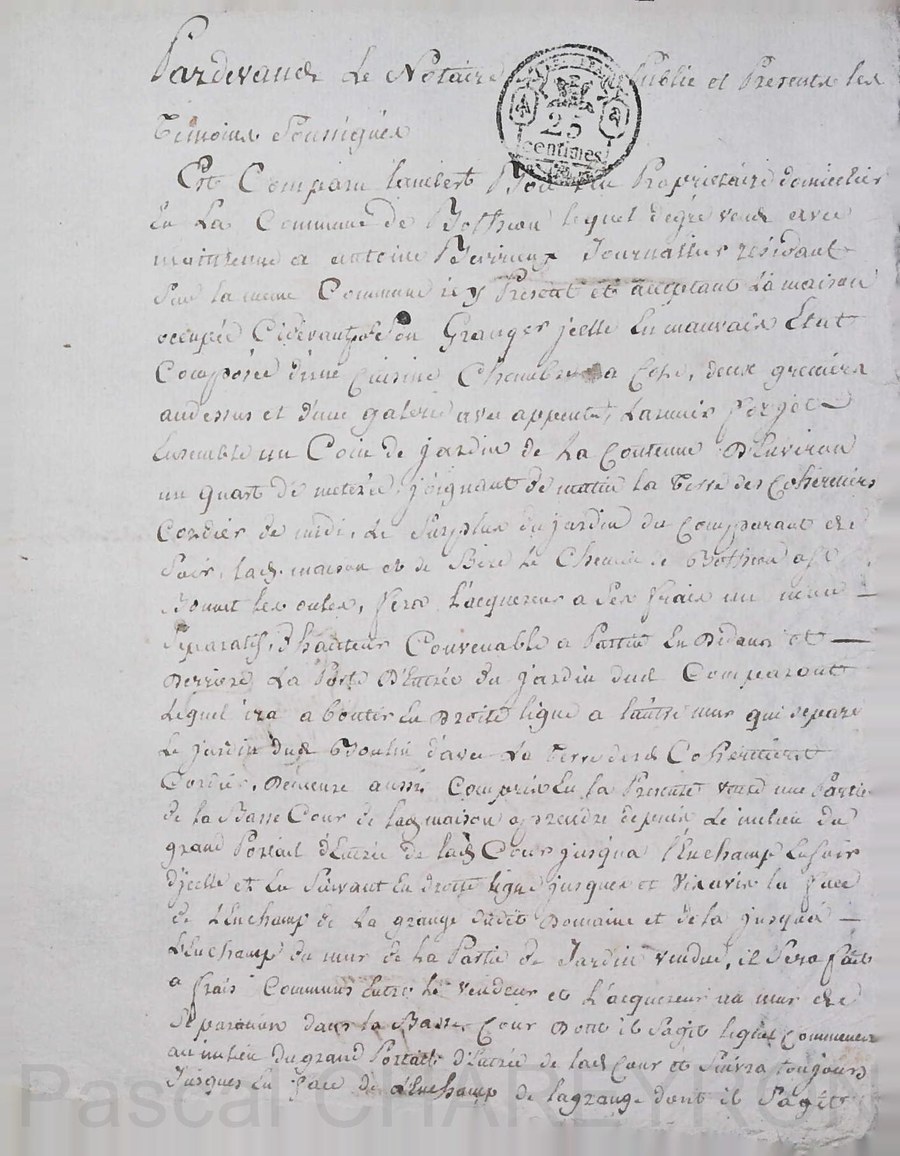 Pardevand Le Notaire Public et Presents les
Temoins Soussignés
25
centimes
Est Comparu Lambert Propriétaire domicilier
En La Commune de Bothéon lequel degré vend avec
maintenue a antoine Perrieux Journallier résidant
Sur la meme Commune icy Présent et acceptant La maison
occupée Cidevant Son Granger jcelle En mauvais Etat
Composée d'une Cuisine Chambre a Coté, deux greniers
audessus et d'une galerie avec appenty,
Ensemble un Coin de jardin de La Contenue D'Environ
un quart de meterée, joignant de matin la Terre des Cohéritiers
Cordier de midi, Le Surplus du jardin du Comparant de
Soir, lad. maison et de Bize Le Chemin de Bothéon a St
Bonnet les oules, fera L'acquereur a Ses frais un mur
Séparatif, D'hauteur Convenable a Partir En Dedans et
Derriere La Porte D'Entrée du jardin dud Comparant
Lequel ira abouter En Droite ligne a lautre mur qui sépare
Le jardin dud d'avec La Terre desd Cohéritiers
Cordier, Demeure aussi Compris En la Présente vente une Partie
de la Basse Cour de lad maison a prendre depuis Le milieu du
grand Portail d'Entrée de lad Cour jusqua l'Enchamp Le Soir
d'jcelle et En Suivant En droite ligne jusques et Vis avis la face
de L'Enchamp de La grange dudit Domaine et de la jusqua
L'Enchamp du mur de La Partie de Jardin vendue, il Sera fait
a frais Communs Entre Le Vendeur et L'acquereur un mur de
Séparation dans la Basse Cour Dont il Sagit lequel Commencera
au milieu du grand Portail d'Entrée de lad Cour et Suivra toujours
Jusques En face de L'Enchamp de La grange dont il Sagit
Pascal CHAREYRON